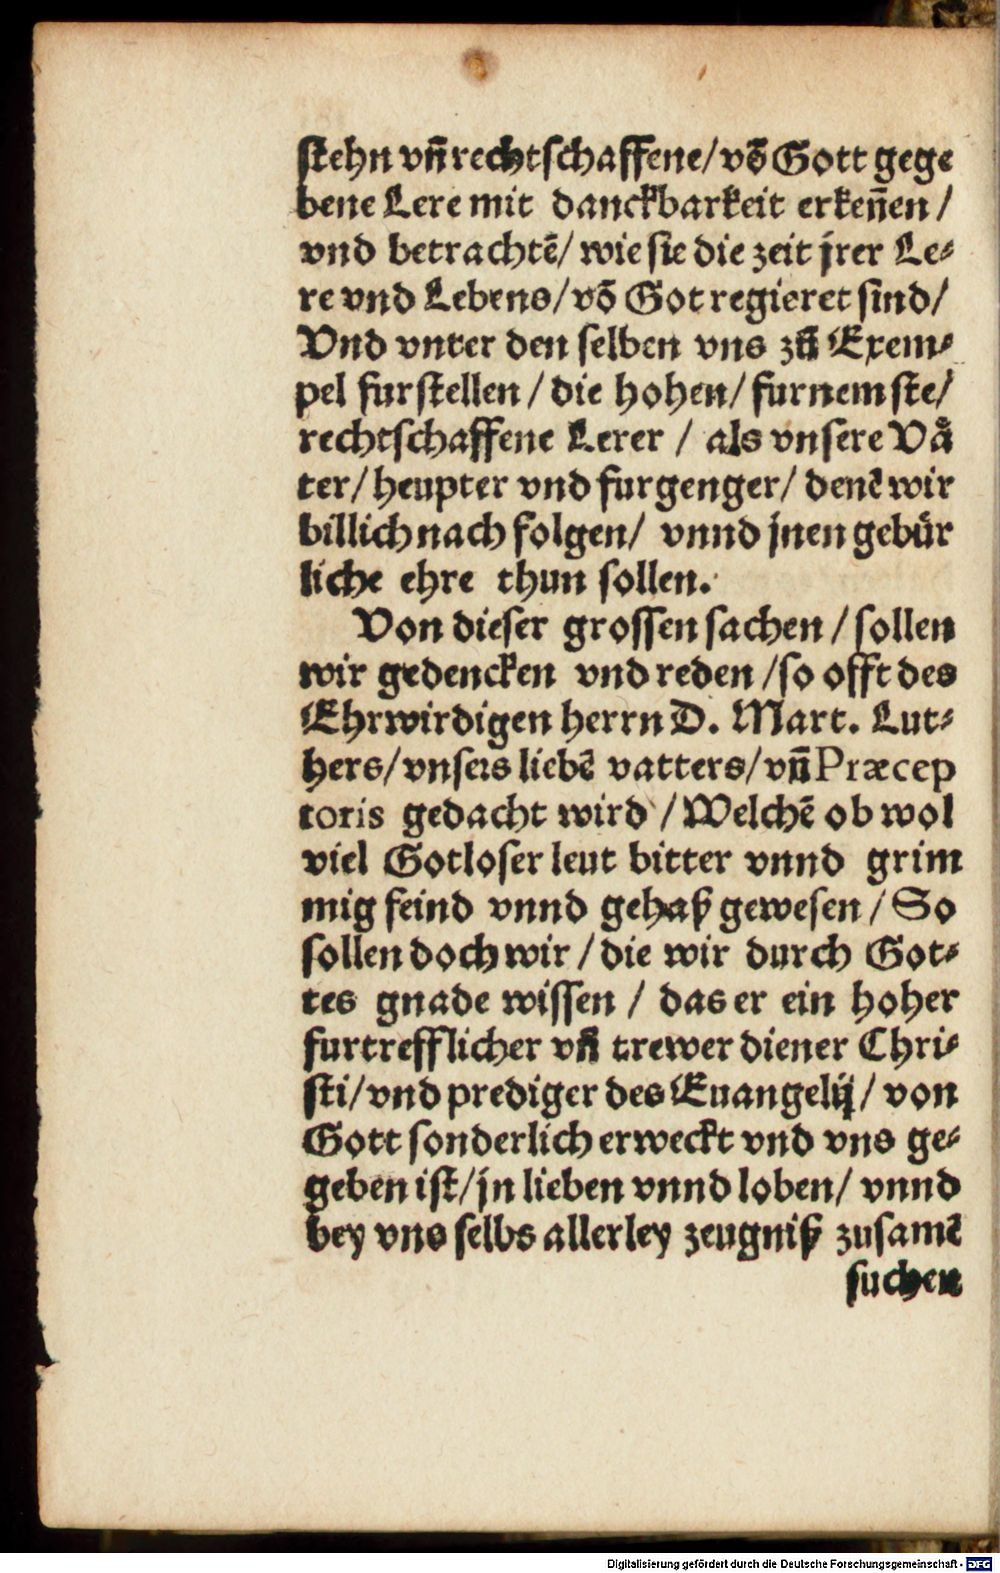 ſtehn vn̄ rechtſchaffene/ vō Gott gege
bene Lere mit danckbarkeit erkeñen /
vnd betrachtē/ wie ſie die zeit jrer Le⸗
re vnd Lebens/ vō Got regieret ſind/
Vnd vnter den ſelben vns zū Exem⸗
pel furſtellen / die hohen/ furnemſte/
rechtſchaffene Lerer / als vnſere Vaͤ
ter/ heupter vnd furgenger/ denē wir
billich nach folgen/ vnnd jnen gebuͤr
liche ehre thun ſollen.
Von dieſer groſſen ſachen / ſollen
wir gedencken vnd reden /ſo offt des
Ehrwirdigen herrn D. Mart. Lut⸗
hers/ vnſers liebē vatters/ vn̄ Præcep
toris gedacht wird / Welchē ob wol
viel Gotloſer leut bitter vnnd grim
mig feind vnnd gehaß geweſen / So
ſollen doch wir / die wir durch Got⸗
tes gnade wiſſen / das er ein hoher
furtrefflicher vn̄ trewer diener Chri⸗
ſti/ vnd prediger des Euangelij / von
Gott ſonderlich erweckt vnd vns ge⸗
geben iſt/ jn lieben vnnd loben/ vnnd
bey vns ſelbs allerley zeugniß zuſamē
ſuchen
Digitalisierung gefördert durch die Deutsche Forschungsgemeinschaft - DFG